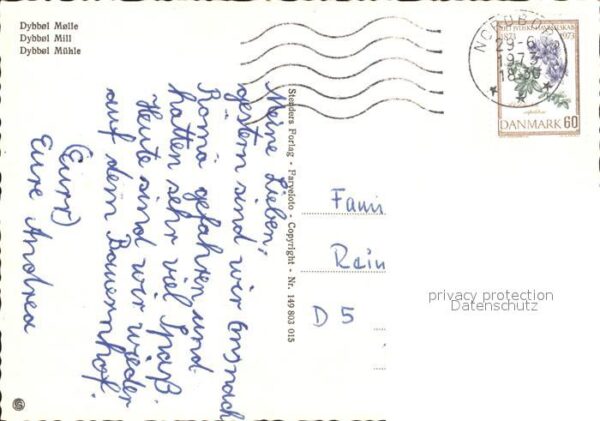 Dybbøl Mølle
Dybbøl Mill
Dybbøl Mühle
Meine Lieben,
gestern sind wir ins nach
Römö gefahren und
hatten sehr viel Spaß.
Heute sind wir wieder
auf dem Bauernhof.
(Eurr)
Eure Andrea
Stenders Forlag - Farvefoto - Copyright - Nr. 149 803 015
NORDBO
29-6
1973
18-30
1873
1973
DANMARK 60
Fami
Rein
D 5
privacy protection
Datenschutz